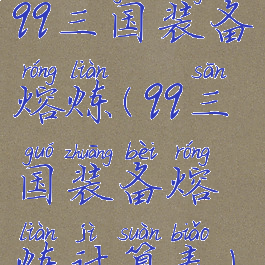 99三国装备
róng liàn sān
熔炼(99三
guó zhuāng bèi róng
国装备熔
liàn jì suàn biǎo
炼计算表)